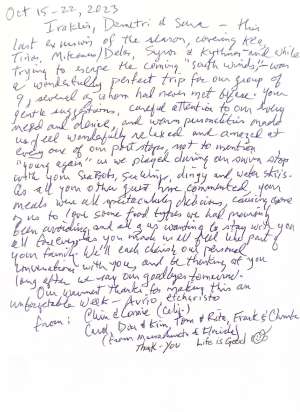 Oct 15-22, 2023
Iraklis, Demetri & Sara - this
last excursion of the season, covering Kea,
Tinos, Mikonos/Delos, Syros & Kythnos - and while
trying to escape the coming "south winds" - was
a wonderfully perfect trip for our group of
9, several of whom had never met before. Your
gentle suggestions, careful attention to our every
need and desire, and warm personalities made
us feel wonderfully relaxed and amazed at
every one of our port stops, not to mention
"young again" as we played during our swim stops
with your snorkels, dingy and water
As all your other guest have commented, your
meals were all spectacularly delicious, causing some
of us to love some food types we had previously
been avoiding and all of us wanting to stay with you
all forever as you made us all feel like part of
your family. We'll each cherish our personal
conversations with you, and be thinking of you
long after we say our goodbyes tomorrow.
Our warmest thanks for making this an
unforgettable week -
from: & (Calif.)
Carol, Don & Kim, Tom & Rita, Frank &
(from Massachusetts & Florida)
Thank-You Life is Good